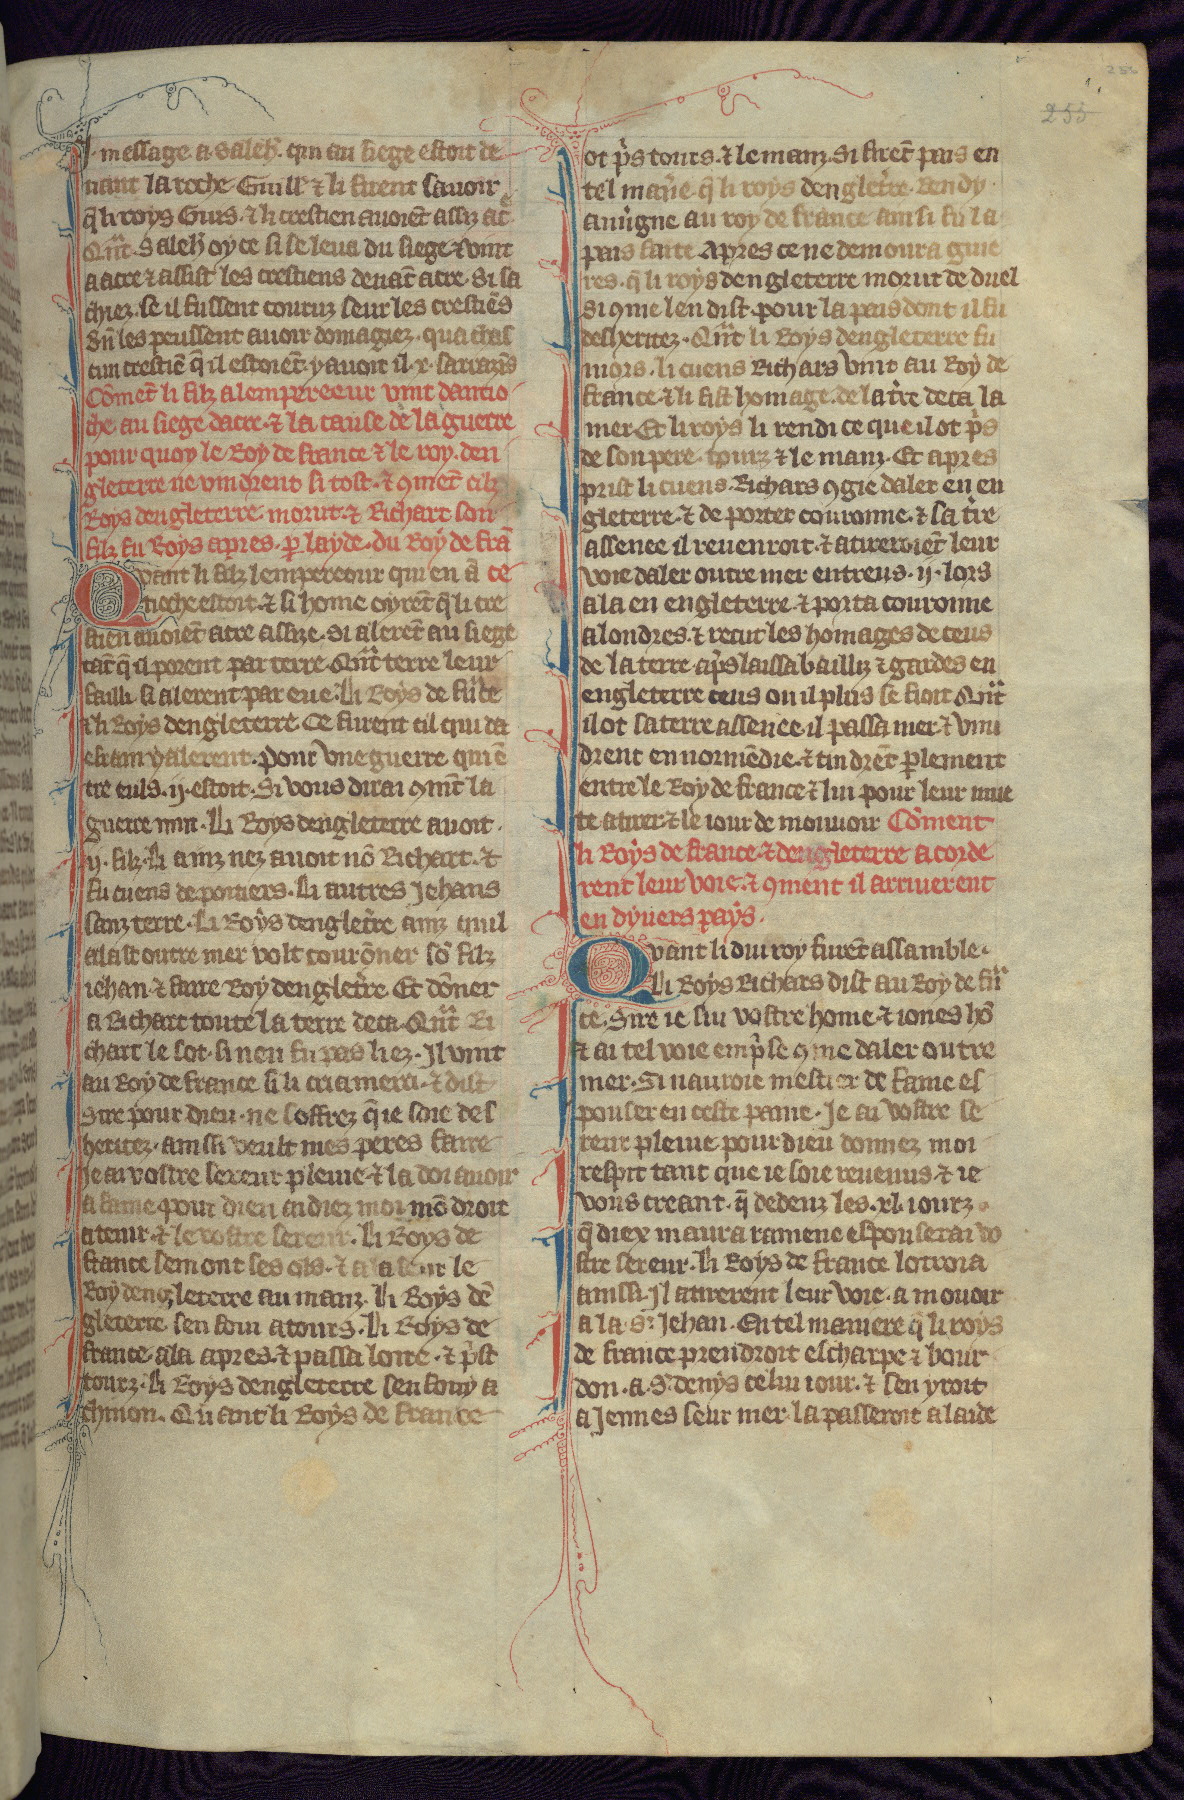 .I. message a saleh̄. qui au siege estoit de
uant la roche Guill'. ⁊ li firent sauoir
q̄ li roys Guis. ⁊ li crestien auoiēt assiz ac̄.
Qn̄t Saleh̄ oy ce si se leua du siege ⁊ vint
a acre ⁊ assist les crestiens deuāt acre. Si sa
chiez. se il fussent couruz seur les crestiēs
Sn̄ les peussent auoir domagiez. qua chas
cun crestiē q̄ il estoiēt. y auoit il .x. sarrazīs
Cōmēt li filz a lempereeur vint dantio
che au siege dacre. ⁊ la cause de la guerre
pour quoy le Roy de france ⁊ le roy. den
gleterre ne vindrent si tost. ⁊ ꝯmēt cilz
Roys dengleterre morut. ⁊ Richart son
filz fu Roys apres. ꝑ layde. du Roy de frā
Quant li filz lempereour qui en ā ce
tioche estoit. ⁊ si home oyrēt q̄ li cre
stien auoiēt acre assize. Si alerēt au siege
tāt q̄ il porent par terre. Qn̄t terre leur
failli si alerent par eue. Li Roys de frāce
⁊ li Roys dengleterre. Ce furent cil qui da
erain y alerent. Pour vne guerre qui ē
tre euls .ij. estoit. Si vous dirai ꝯmēt la
guerre mut. Li Roys dengleterre auoit.
.ij. filz. Li ainz nez auoit nō Richart. ⁊
fu cuens de poitiers. Li autres Jehans
sanz terre. Li Roys denglet̄re ainz quil
alast outre mer volt courōner sō filz
iehan. ⁊ faire Roy denglet̄re. Et dōner
a Richart toute la terre deca. Qn̄t Ri
chart le sot. si nen fu pas liez. Il vint
au Roy de france si li cria merci. ⁊ dist
Sire pour dieu. ne soffrez q̄ ie soie des
heritez. ainssi veult mes peres faire
Je ai vostre sereur pleuie. ⁊ la doi auoir
a fame pour dieu aidiez moi mō droit
a tenir. ⁊ le vostre sereur. Li Roys de
france semont ses os. ⁊ ala seur le
Roy dengleterre au manz. Li Roys dē
gleterre sen foui a tours. Li Roys de
france ala apres. ⁊ passa loire. ⁊ p̄st
tourz. Li Roys dengleterre sen fouy a
chinon. Quant li Roys de france
ot p̄s tours. ⁊ le manz. Si firēt pais en
tel mar̄e. q̄ li roys denglet̄re. Rendy
auūgne au roy de france ainsi fu la
pais faite Apres ce ne demoura guie
res. q̄ li roys dengleterre morut de duel
si ꝯme len dist. pour la pais dont il fu
desheritez. Qn̄t li Roys dengleterre fu
mors. li cuens Richars vint au Roy de
france. ⁊ li fist homage. de la t̄re deca la
mer. Et li roys li rendi ce que il ot p̄s
de son pere. tourz ⁊ le manz. Et apres
prist li cuens. Richars ꝯgie daler en en
gleterre. ⁊ de porter couronne. ⁊ sa t̄re
assenee il reuenroit. ⁊ atireroiēt leur
voie daler outre mer entreus .ij. lors
ala en engleterre. ⁊ porta couronne
a londres. ⁊ recut les homages de ceus
de la terre. ap̄s laissa bailliz ⁊ gardes en
engleterre ceus ou il plus se fioit. Qn̄t
il ot sa terre assenee. il passa mer. ⁊ vin
drent en normēdie. ⁊ tindrēt ꝑlement
entre le Roy de france ⁊ lui pour leur mue
te atirer. ⁊ le iour de mouuoir Cōment
li Roys de france. ⁊ dengleterre acorde
rent leur voie. ⁊ ꝯment il arriuerent
en dyuers pays.
Quant li dui roy furēt assamble.
Li Roys Richars dist au Roy de frā
ce. Sire ie sui vostre home. ⁊ iones hō
⁊ ai tel voie emp̄se ꝯme daler outre
mer. Si nauroie mestier de fame es
pouser en ceste paine. Je ai vostre se
reur pleuie. pour dieu donnez moi
respit tant que ie soie reuenus. ⁊ ie
vous creant. q̄ dedenz les .xl. iourz.
q̄ diex maura ramene espouserai vo
stre sereur. Li Roys de france lotroia
ainssi. Il atirerent leur voie. a mouoir
a la S. Jehan. En tel maniere q̄ li roys
de france prendroit escharpe ⁊ bour
don. a. S. denys celui iour. ⁊ sen yroit
a Jennes seur mer. la passeroit a laide
255